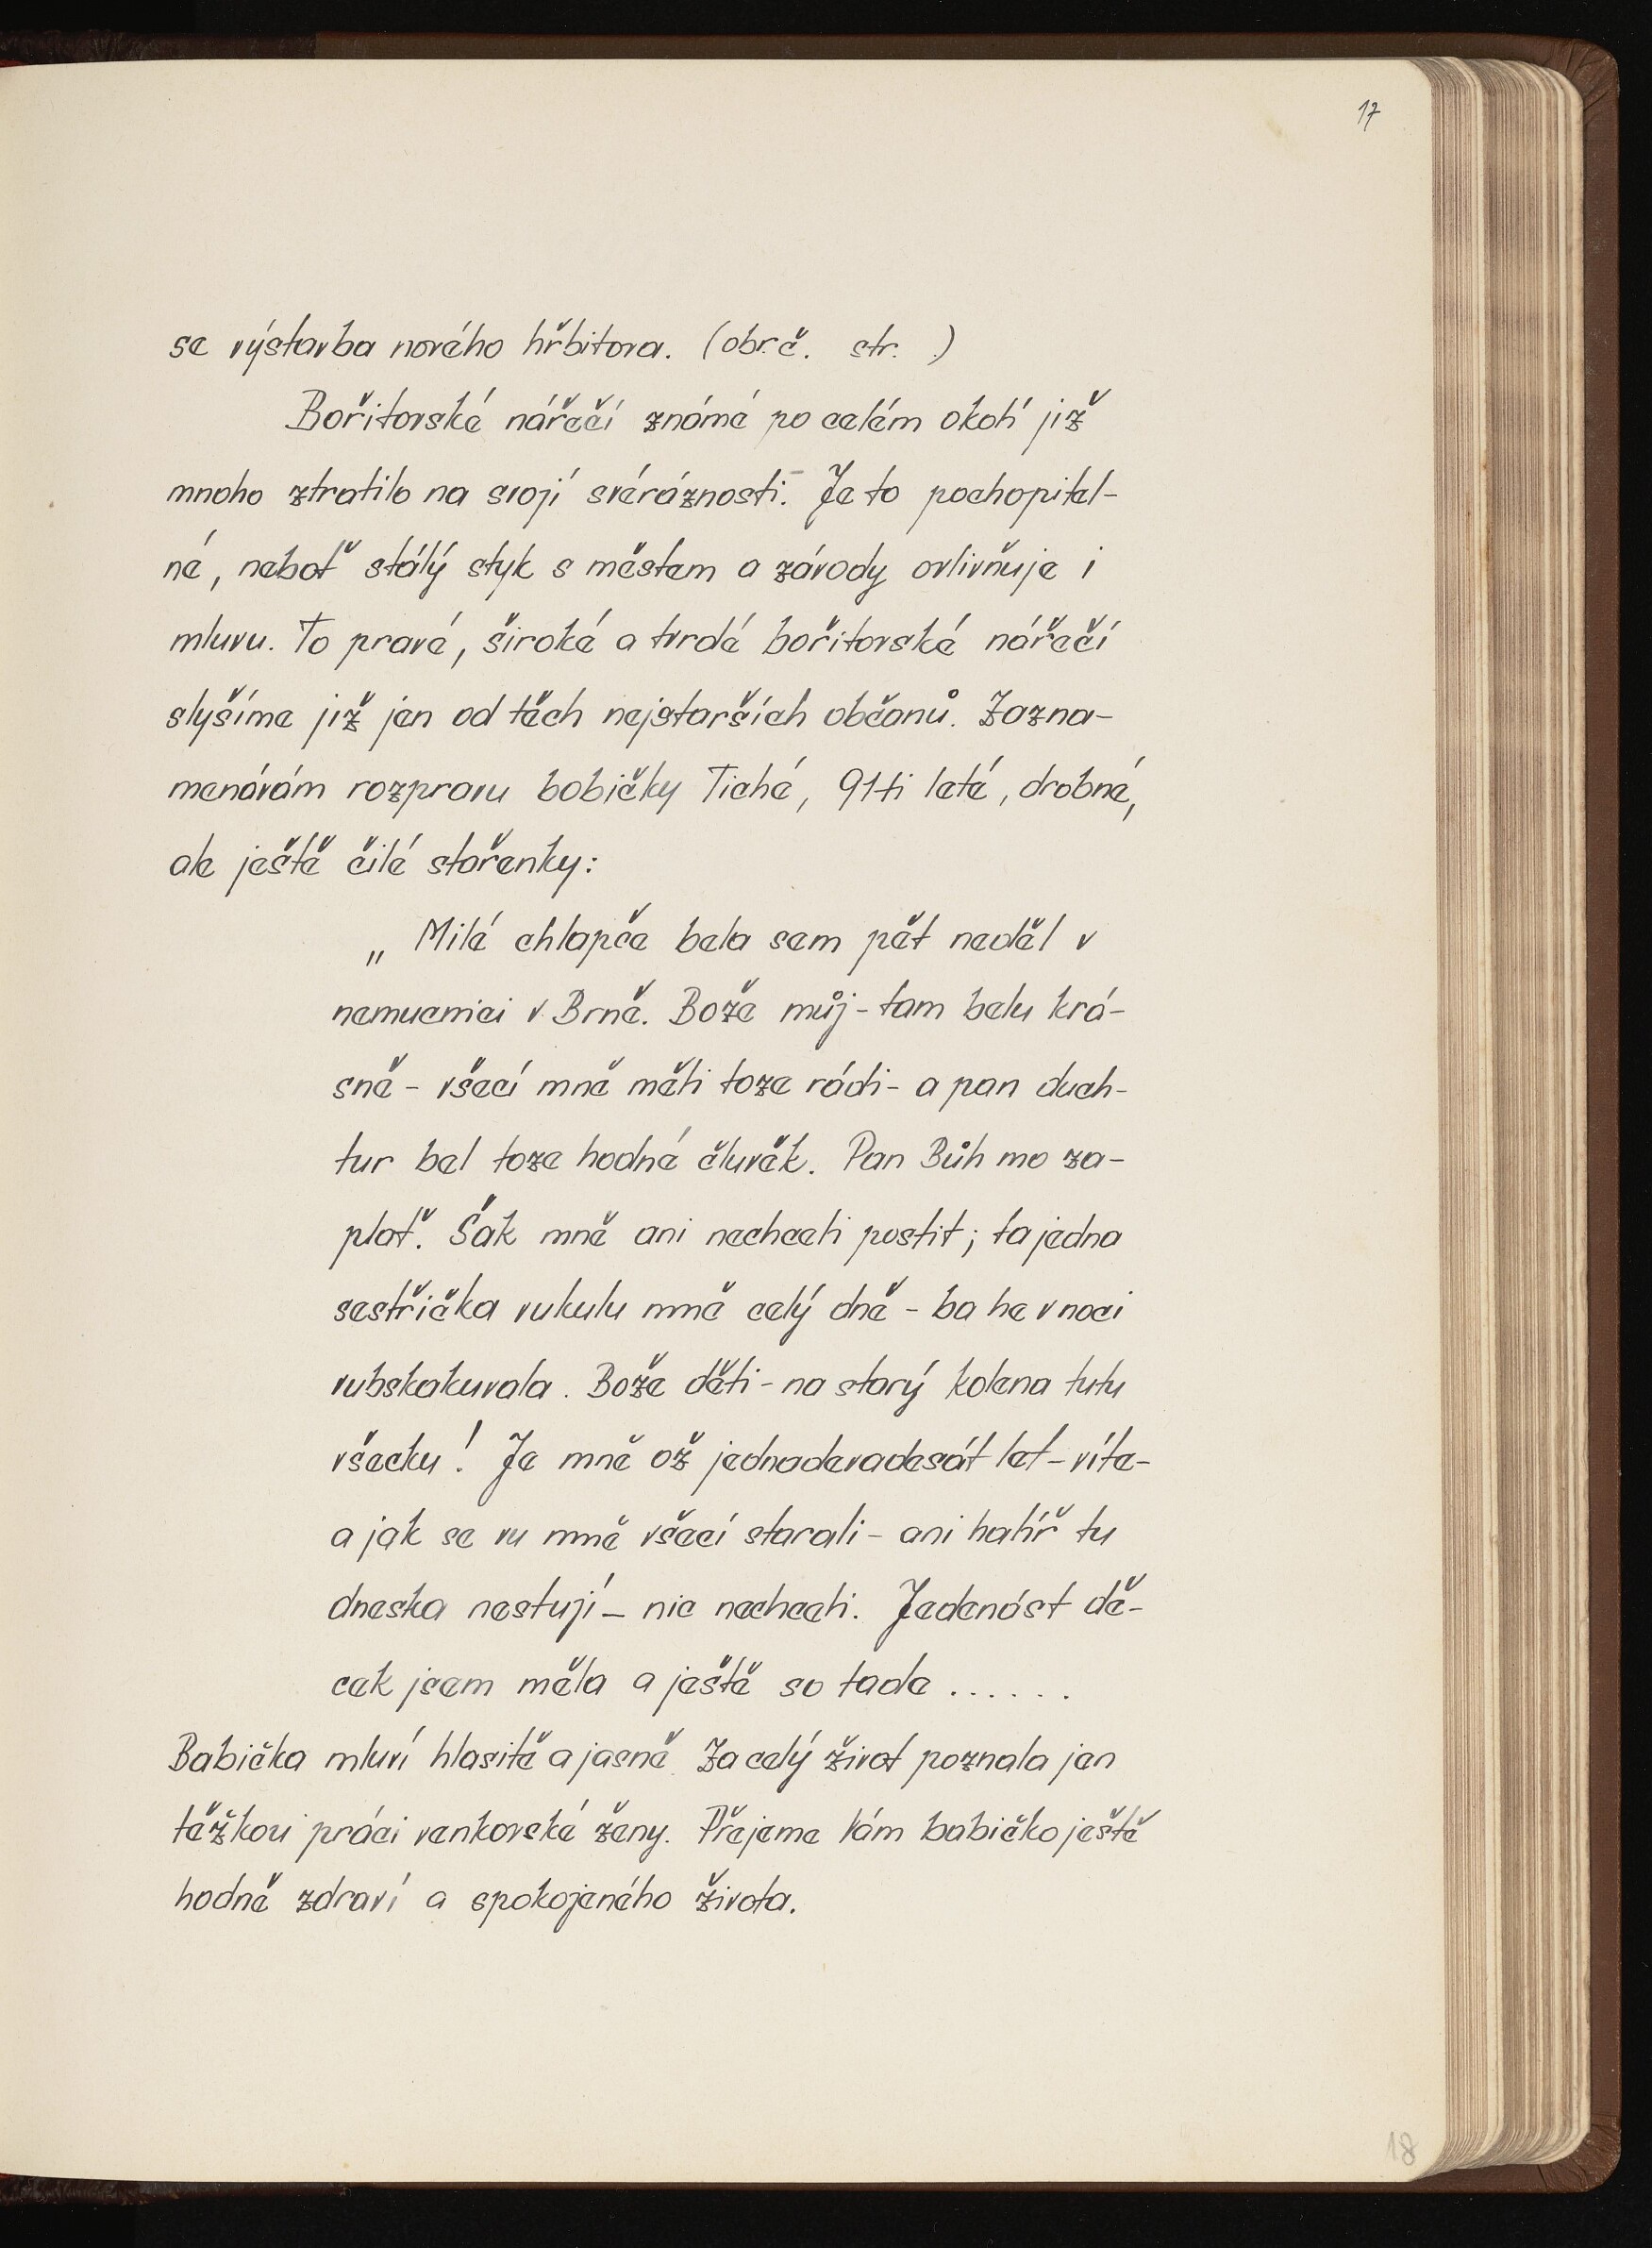 17
se výstavba nového hřbitova. (obr.č. str. )
Bořitovské nářečí známé po celém okolí již
mnoho ztratilo na svojí svéráznosti. Je to pochopitel-
né, neboť stálý styk s městem a závody ovlivňuje i
mluvu. To pravé, široké a tvrdé bořitovské nářečí
slyšíme již jen od těch nejstarších občanů. Zazna-
menávám rozpravu babičky Tiché, 91ti leté, drobné,
ale ještě čilé stařenky:
„ Milé chlapče bela sem pět neděl v
nemucnici v Brně. Bože můj - tam belu krá-
sně - všecí mně měli toze rádi - a pan duch-
tur bel toze hodné čluvěk. Pan Bůh mo za-
plať. Šak mně ani nechceli postit; ta jedna
sestřička vukulu mně celý dně - ba he v noci
vubskakuvala. Bože děti - na starý kolena tutu
všecku! Je mněož jednadevadesát let - víte -
a jak se vu mně všecí starali - ani halíř tu
dneska nestují - nic nechceli. Jedenást dě-
cek jsem měla a ještě so tade ......
Babička mluví hlasitě a jasně. Za celý život poznala jen
těžkou práci venkovské ženy. Přejeme Vám babičko ještě
hodně zdraví a spokojeného života.
18